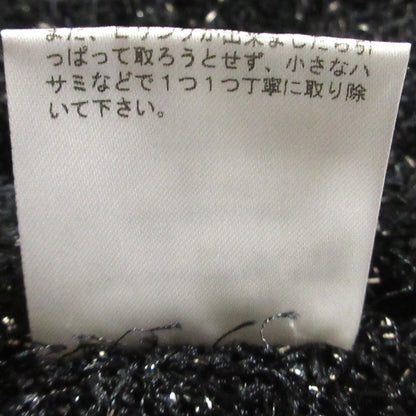 また、ピリングが出来ましたら引
っぱって取ろうとせず、小さなハ
サミなどで１つ１つ丁寧に取り除
いて下さい。